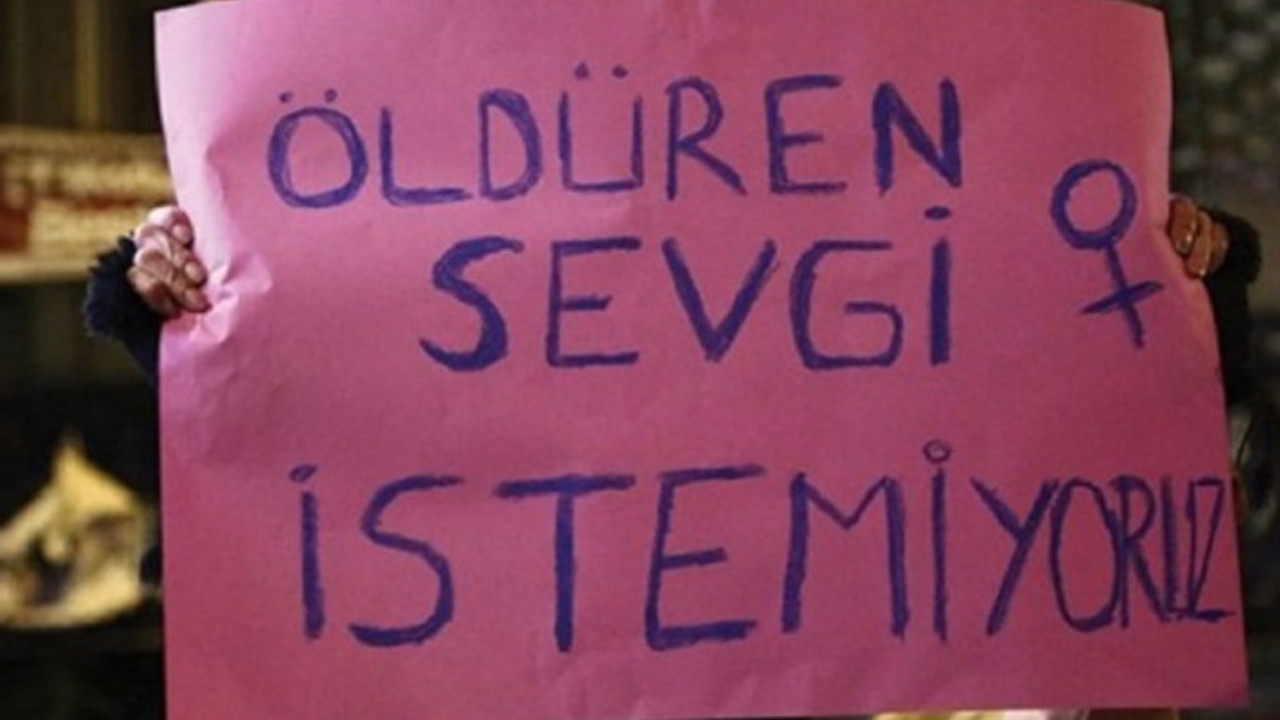 ÖLDÜREN
SEVGİ
İSTEMİYORUZ